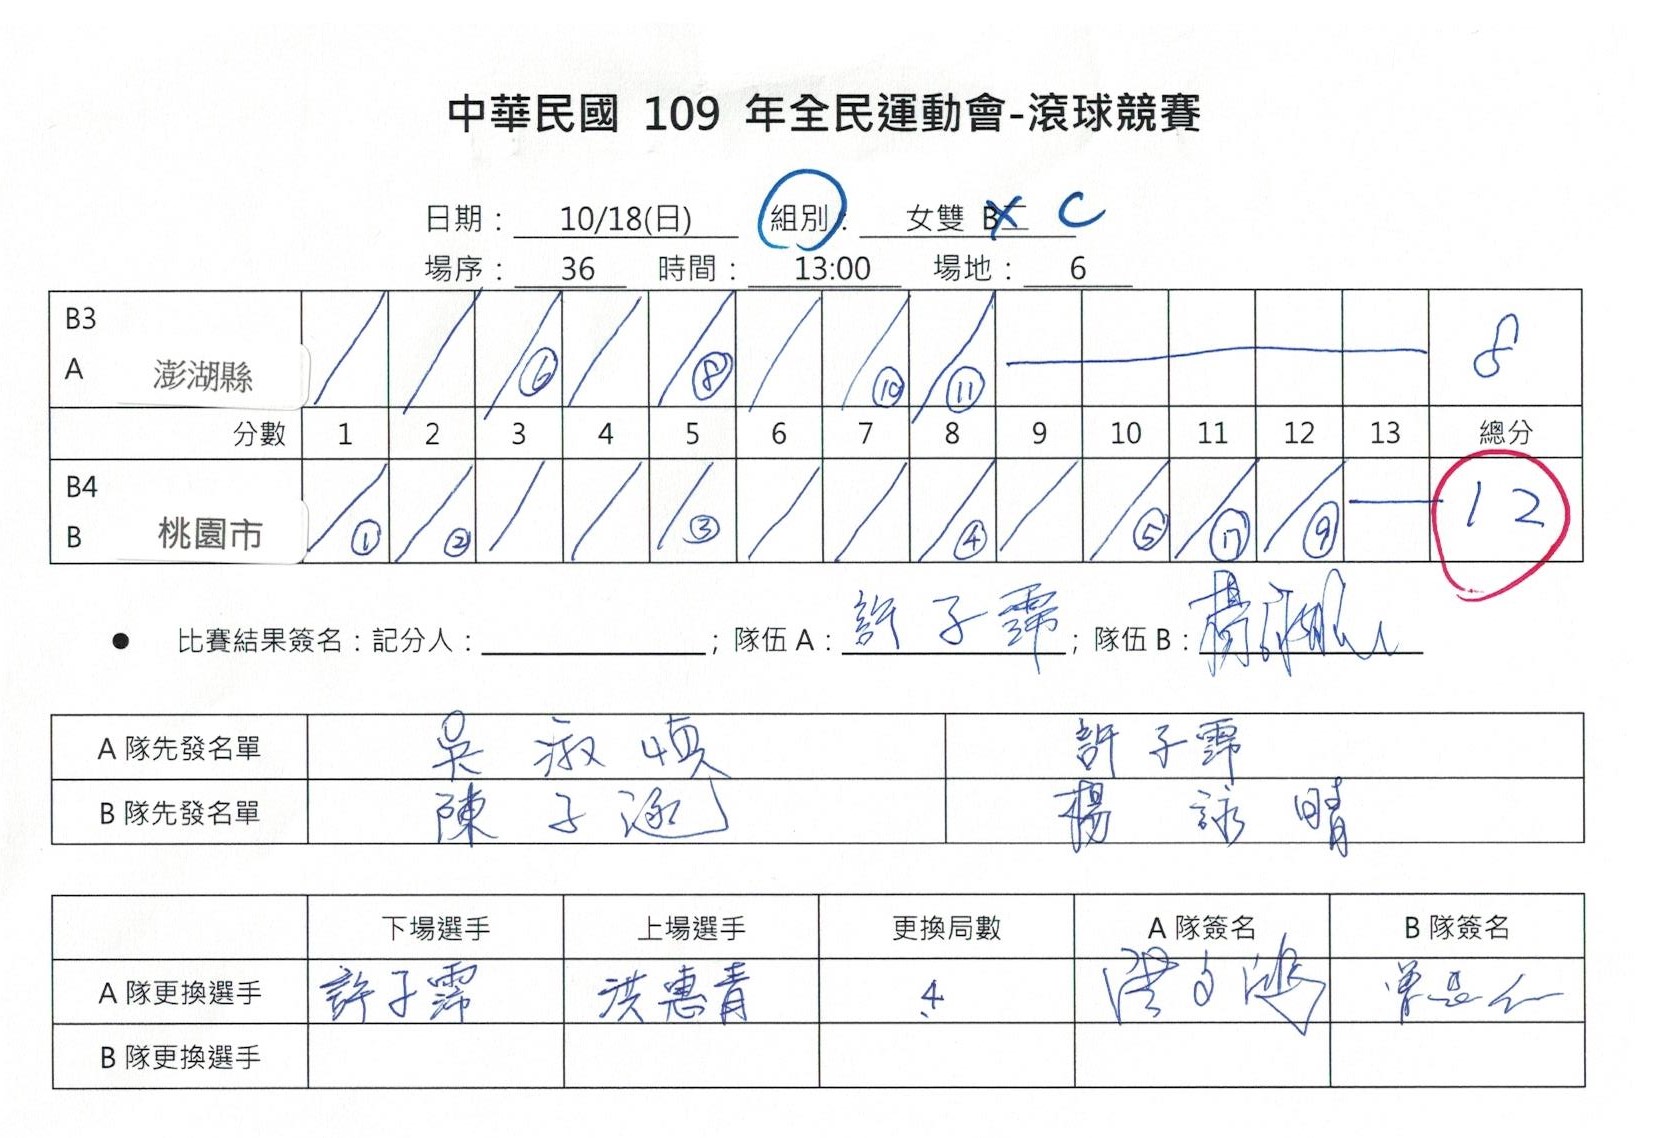 中華民國 109 年全民運動會-滾球競賽
日期： 10/18(日) 組別： 女雙 B C
場序： 36 時間： 13:00 場地： 6
B3
A 澎湖縣 ⑥ ⑧ ⑩ ⑪ 8
分數 1 2 3 4 5 6 7 8 9 10 11 12 13 總分
B4 12
B 桃園市 ① ② ③ ④ ⑤ ⑨
● 比賽結果簽名：記分人： ；隊伍 A： 許子霈 ；隊伍 B：
A 隊先發名單 吳淑慎 許子霈
B 隊先發名單 陳子 楊詠晴
下場選手 上場選手 更換局數 A 隊簽名 B 隊簽名
A 隊更換選手 許子霈 洪惠青 4
B 隊更換選手